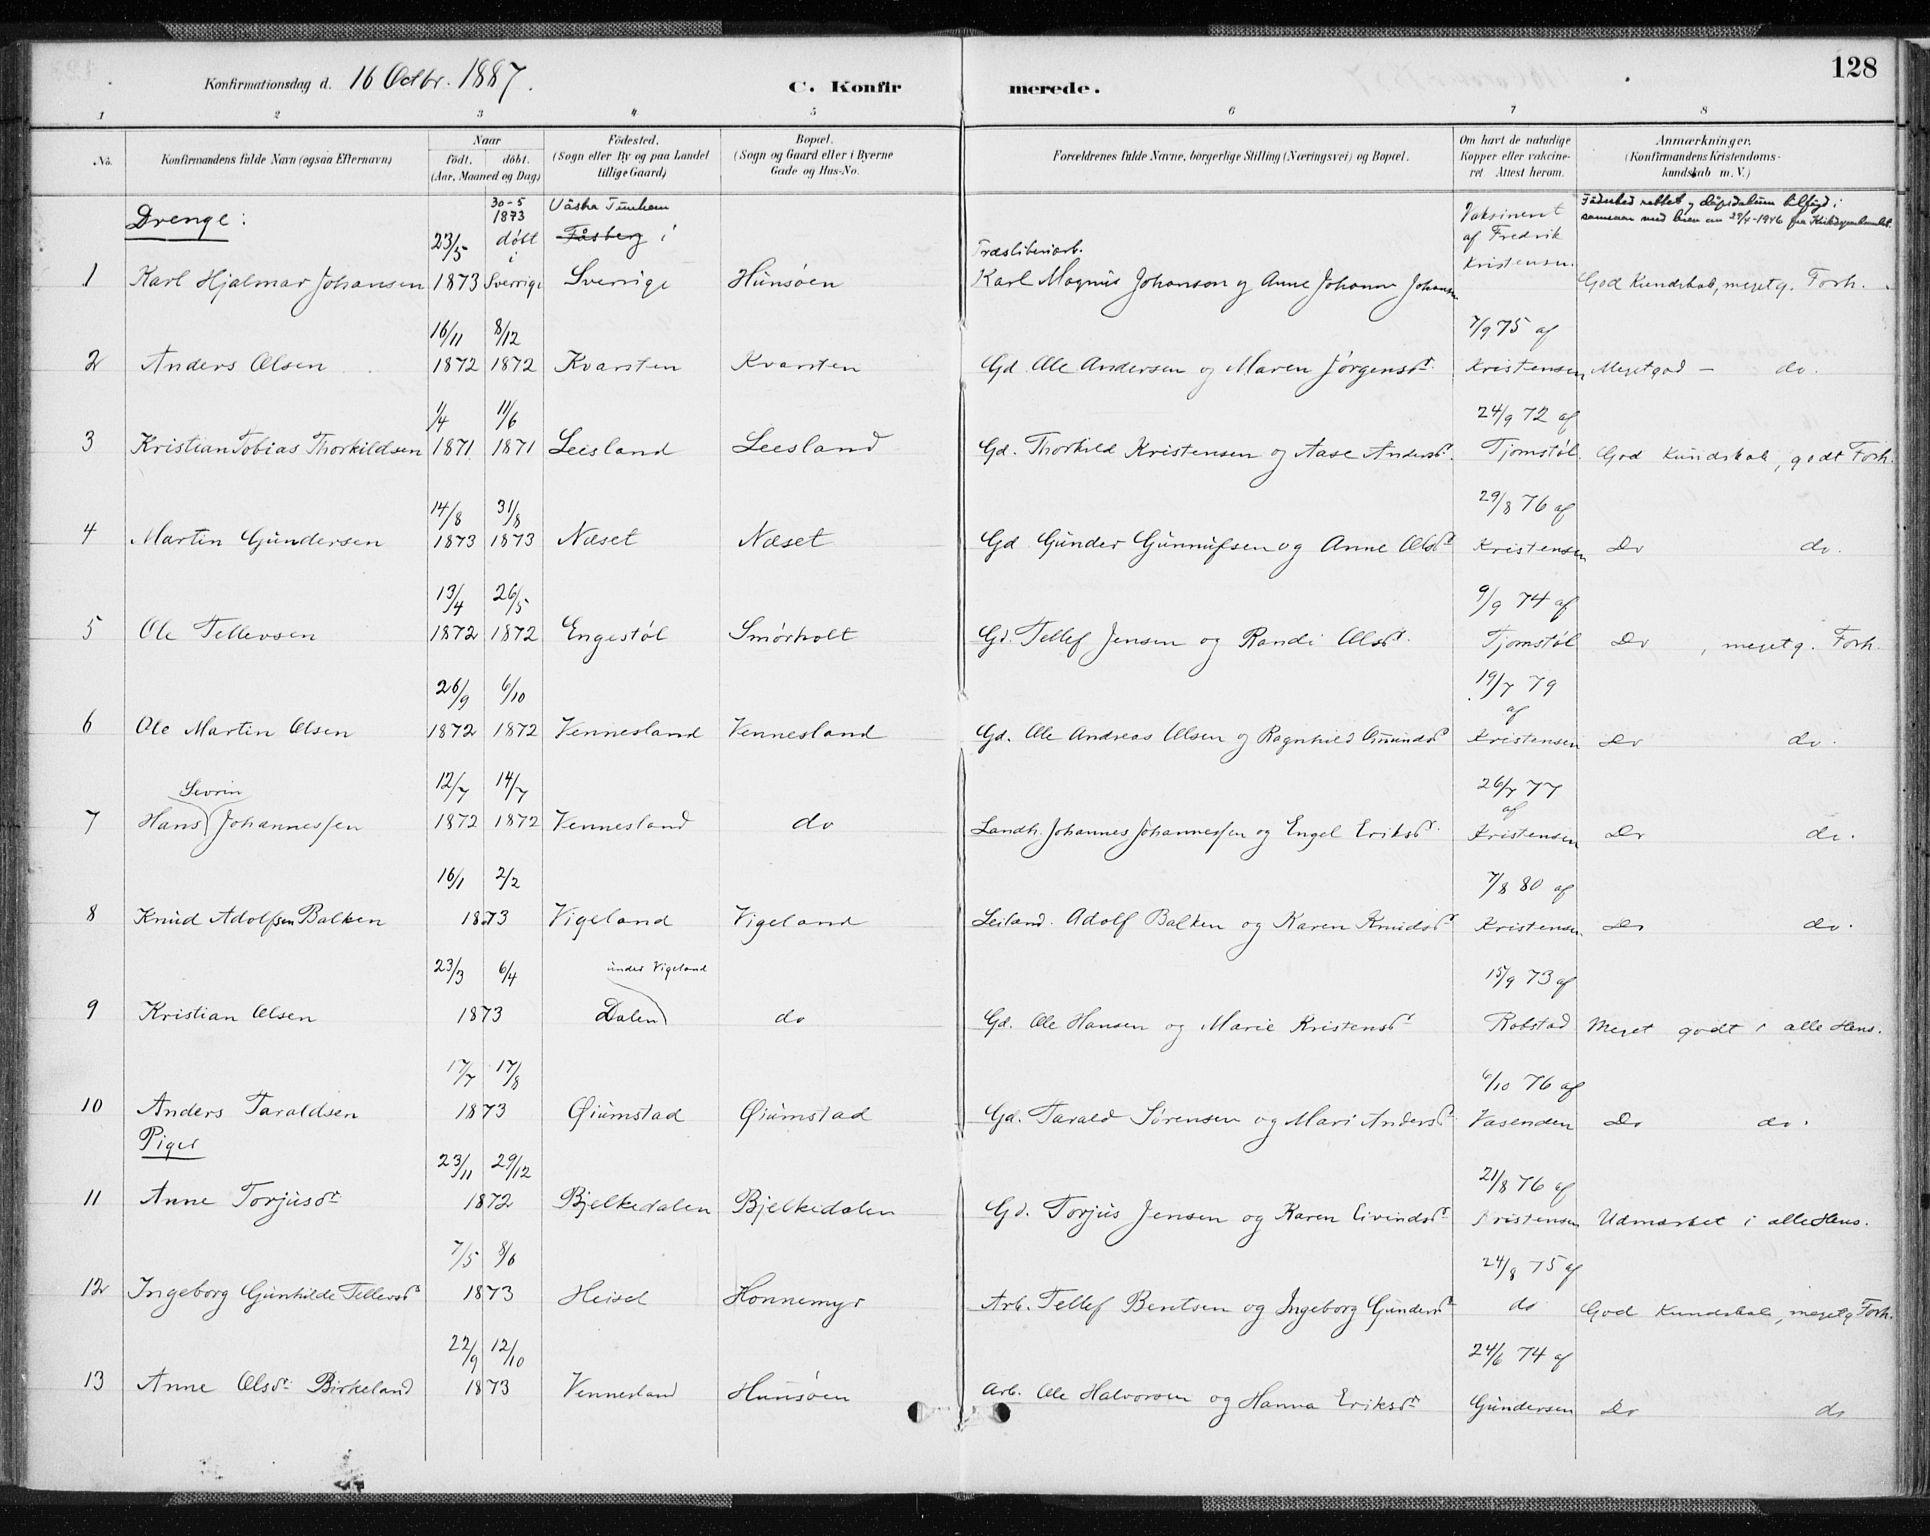 128
Konfirmationsdag d. 16 Octbr. 1887.
C. Konfirmerede.
1 2 3 4 5 6 7 8
No.
Konfirmandens fulde Navn (ogsaa Efternavn)
Naar
født. døbt.
(Aar, Maaned og Dag)
Fødested.
(Sogn eller By og paa Landet
tillige Gaard)
Bopæl.
(Sogn og Gaard eller i Byerne
Gade og Hus-No.
Forældrenes fulde Navne, borgerlige Stilling (Næringsvei) og Bopæl.
Om havt de naturlige
Kopper eller vakcine-
ret Attest herom.
Anmærkninger.
(Konfirmandens Kristendoms-
kundskab m. V.)
Drenge:
1 Karl Hjalmar Johansen 23/5 1873 30-5 1873 døbt i Sverrige Västra Tunhem Fåsberg i Sverrige Hunsøen Træsliberiarb. Karl Magnus Johanson og Anne Johanne Johansen Vaksineret af Fredrik Kristensen God Kundskab, megetg. Forh.
2 Anders Olsen 16/11 1872 8/12 1872 Kvarsten Kvarsten Gd. Ole Andersen og Maren Jørgensdr. 7/9 75 af Kristensen Megetgod – do.
3 Kristian Tobias Thorkildsen 1/4 1871 11/6 1871 Leesland Leesland Gd. Thorkild Kristensen og Aase Andersdr. 24/9 72 af Tjomstøl. God Kundskab, godt Forh.
4 Martin Gundersen 14/8 1873 31/8 1873 Næset Næset Gd. Gunder Gunnufsen og Anne Olsdr 29/8 76 af Kristensen Do do.
5 Ole Tellevsen 13/4 1872 26/5 1872 Engestøl Smørholt Gd. Tellef Jensen og Randi Olsdr. 9/9 74 af Tjomstøl Do, megetg. Forh.
6 Ole Martin Olsen 26/9 1872 6/10 1872 Vennesland Vennesland Gd. Ole Andreas Olsen og Ragnhild Gmundsdr 19/7 79 af Kristensen Do do.
7 Hans Sevrin Johannessen 12/7 1872 14/7 1872 Vennesland do Landh. Johannes Johannessen og Engel Eriksdr. 26/7 77 af Kristensen Do do.
8 Knud Adolfsen Balken 16/1 2/2 1873 Vigeland Vigeland Leiland. Adolf Balken og Karen Knudsdr 7/8 80 af Kristensen Do do.
9 Kristian Olsen 23/3 6/4 1873 Dalen under Vigeland do Gd. Ole Hansen og Marie Kristensdr 15/9 73 af Robstad Meget godt i alle Hens.
10 Anders Taraldsen 17/7 17/8 1873 Øiumstad Øiumstad Gd. Tarald Sørensen og Mari Andersdr 6/10 76 af Vasenden Do do.
Piger
11 Anne Torjusdr 23/11 29/12 1872 Bjelkedalen Bjelkedalen Gd. Torjus Jensen og Karen Eivindsdr 21/8 76 af Kristensen Udmærket i alle Hens.
12 Ingeborg Gunhilde Tellevsdr 7/5 8/6 1873 Heisel Honnemyr Arb. Tellef Bentsen og Ingeborg Gundersdr 24/8 75 af do God Kundskab, megetg Forh.
13 Anne Olsdr. Birkeland 22/9 12/10 1873 Vennesland Hunsøen Arb. Ole Halvorsen og Hanna Eriksdr 24/6 74 af Gundersen Do do